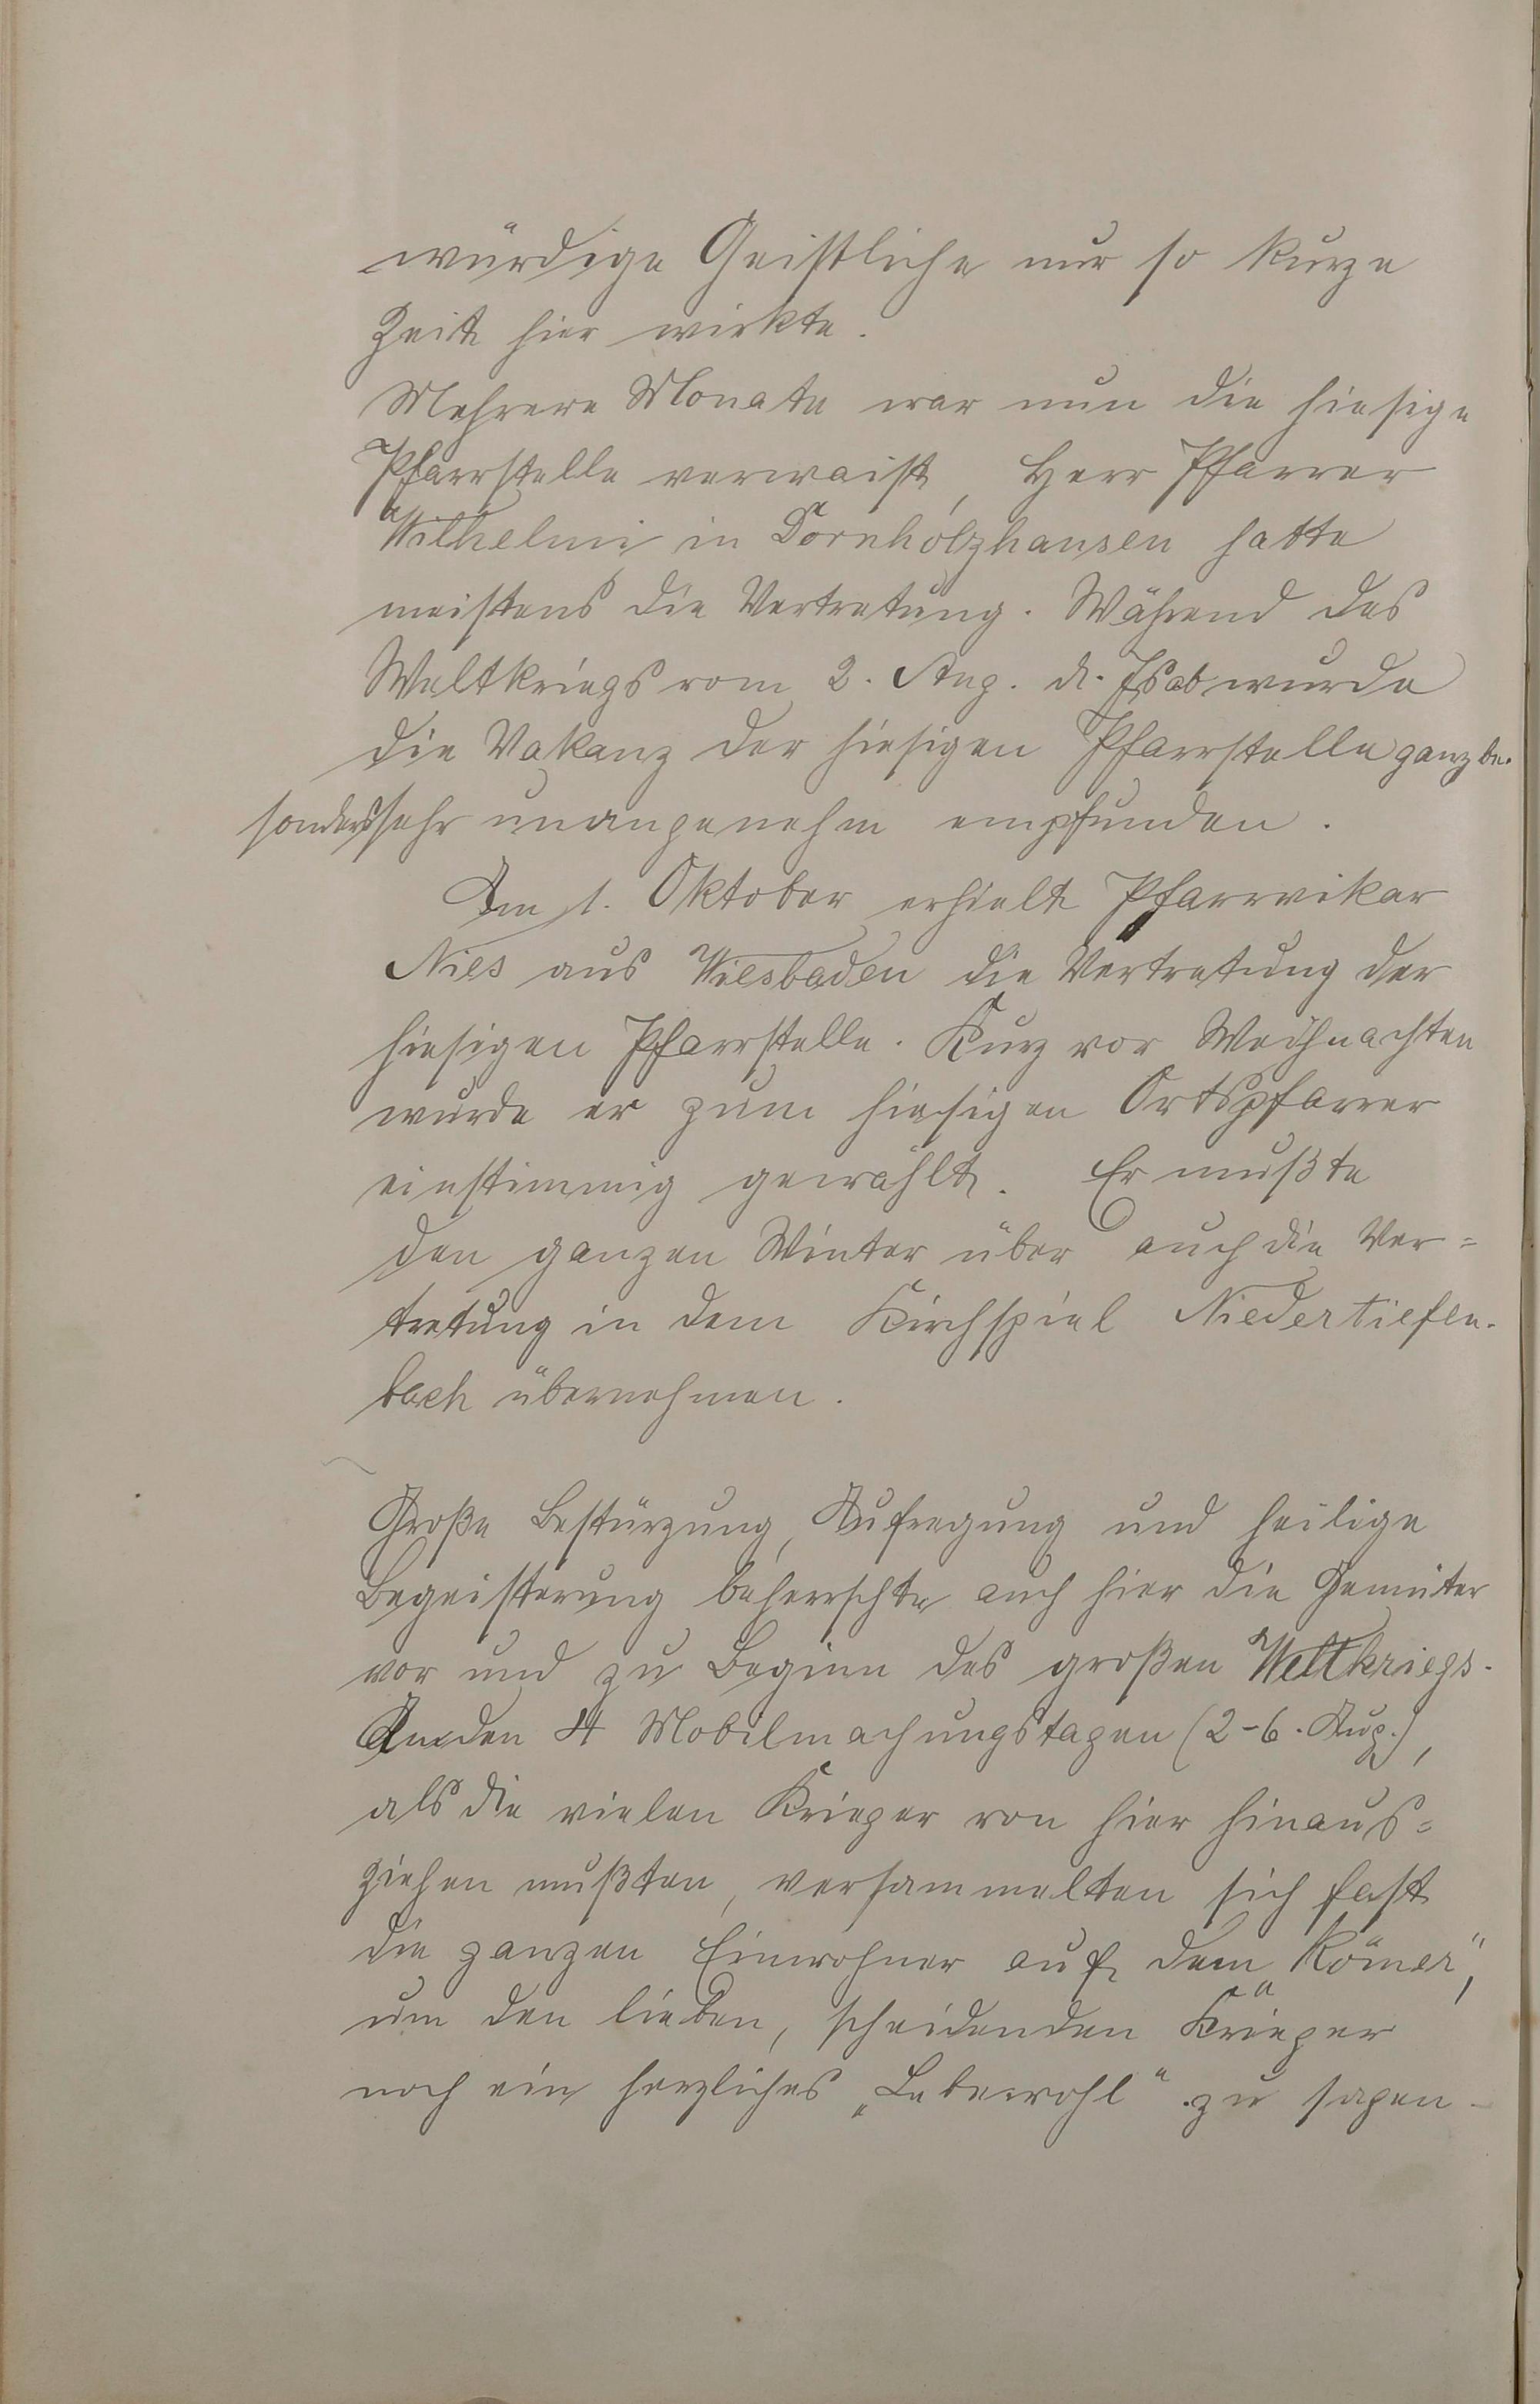 würdige Geistliche nur so kurze
Zeit hier wirkte.
Mehrere Monate war nun die hiesige
Pfarrstelle verwaist, Herr Pfarrer
Wilhelmi in Dornholzhausen hatte
meistens die Vertretung. Während des
Weltkriegs vom 2. Aug. d. Js ab wurde
die Vakanz der hiesigen Pfarrstelle ganz be-
sonders sehr unangenehm empfunden.
Am 1. Oktober erhielt Pfarrvikar
Nies aus Wiesbaden die Vertretung der
hiesigen Pfarrstelle. Kurz vor Weihnachten
wurde er zum hiesigen Ortspfarrer
einstimmig gewählt. Er mußte
den ganzen Winter über auch die Ver=
tretung in dem Kirchspiel Niedertiefen-
bach übernehmen.
Große Bestürzung, Aufregung und heilige
Begeisterung beherrschte auch hier die Gemüter
vor und zu Beginn des großen Weltkriegs.
An den 4 Mobilmachungstagen (2-6. Aug.),
als die vielen Krieger von hier hinaus=
ziehen mußten, versammelten sich fast
die ganzen Einwohner auf dem „Römer",
um den lieben, scheidenden Krieger
noch ein herzliches „Lebewohl" zu sagen.